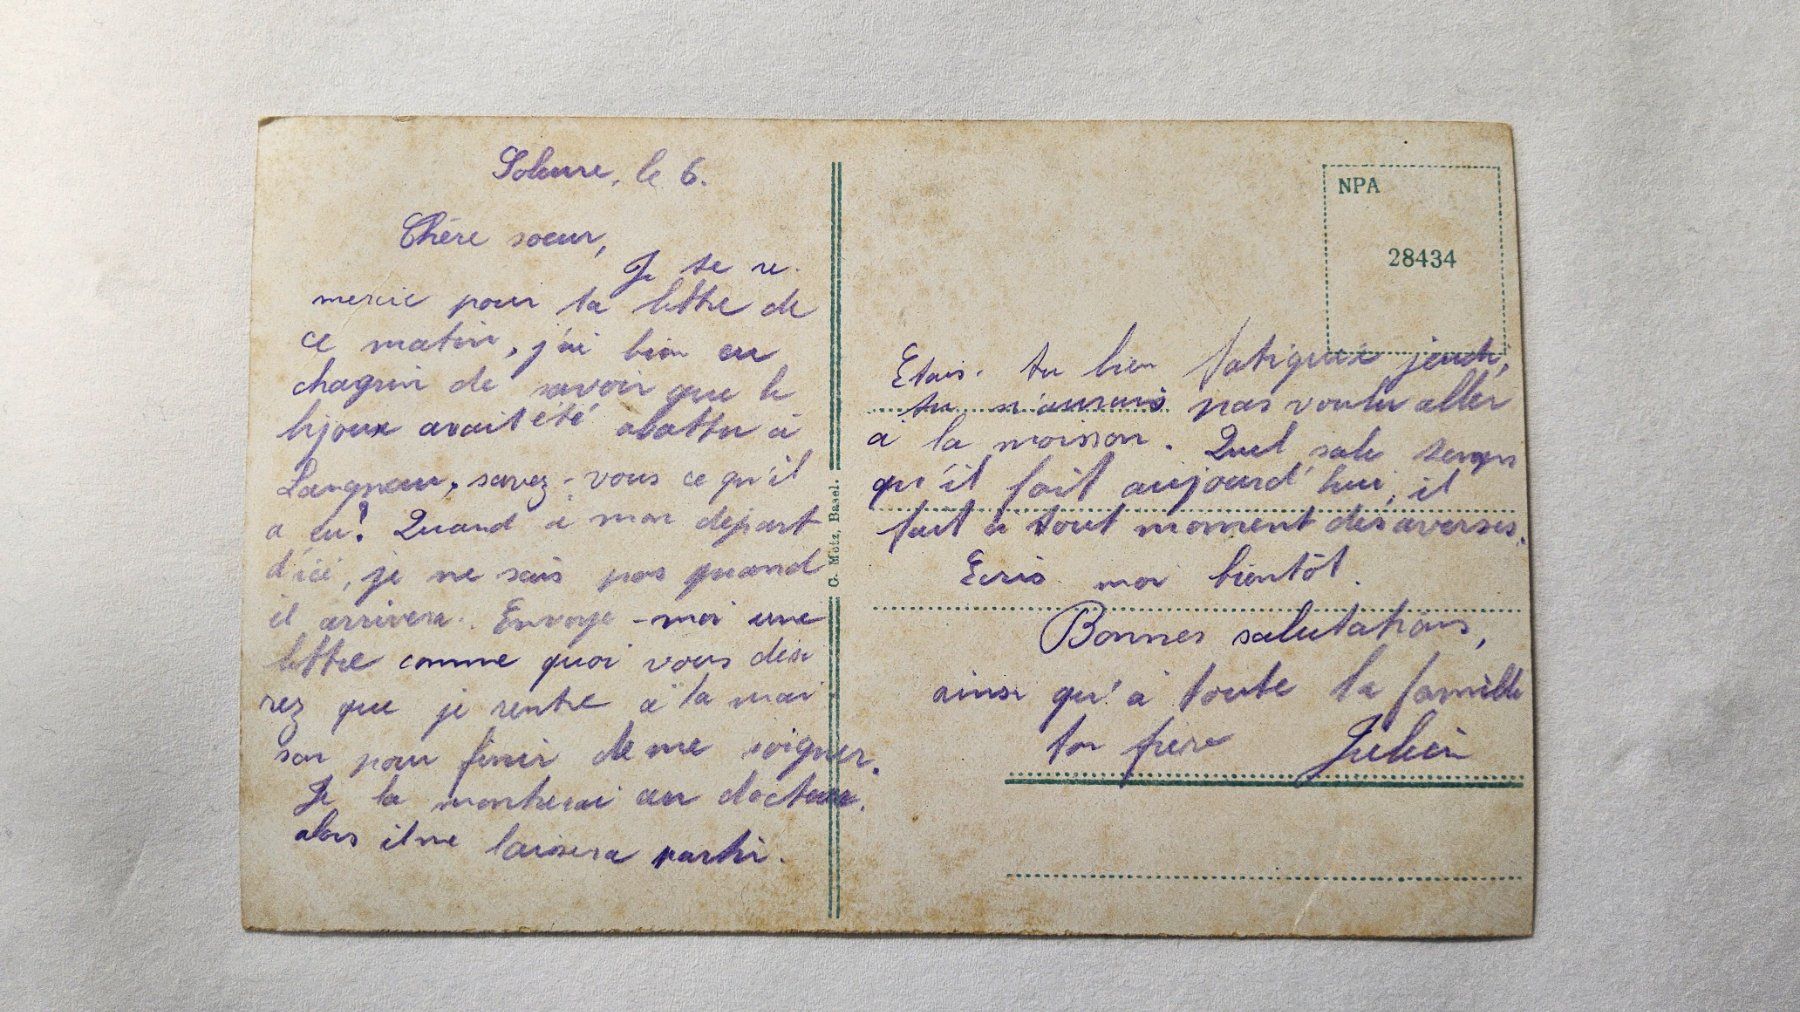 Soleure, le 6.
Chère soeur,
Je te re-
mercie pour ta lettre de
ce matin, j'ai bien eu
chagrin de savoir que le
bijoux avait été abattu à
Langnau, savez-vous ce qu'il
a eu? Quand à mon départ
d'ici, je ne sais pas quand
il arrivera. Envoye-moi une
lettre comme quoi vous dési
rez que je rentre à la mai-
son pour finir de me soigner.
Je la montrerai au docteur.
alors il me laissera partir.
G. Metz, Basel.
NPA
28434
Etais-tu bien fatiguée jeudi,
tu n'aurais pas voulu aller
à la moisson. Quel sale temps
qu'il fait aujourd'hui, il
fait à tout moment des averses.
Ecris moi bientôt.
Bonnes salutations,
ainsi qu'à toute la famille
ton frère Julien